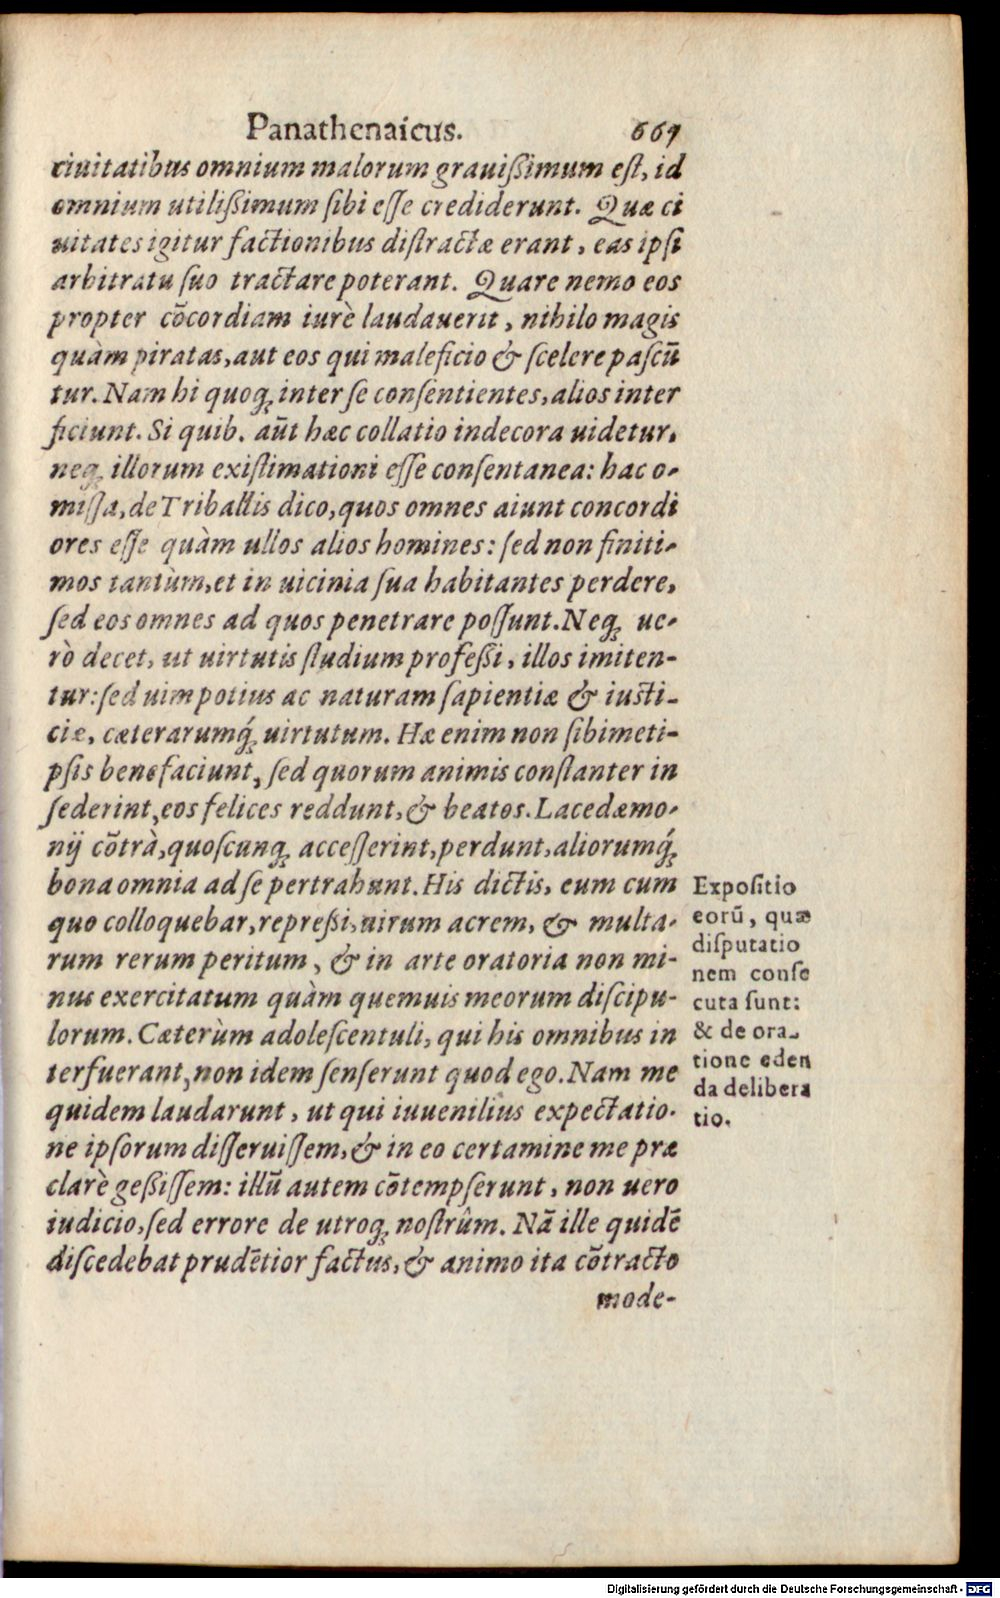 Panathenaicus. 667
ciuitatibus omnium malorum grauißimum eſt, id
omnium utilißimum ſibi eſſe crediderunt. Quæ ci
uitates igitur factionibus diſtractæ erant, eas ipſi
arbitratu ſuo tractare poterant. Quare nemo eos
propter cõcordiam iurè laudauerit, nihilo magis
quàm piratas, aut eos qui maleficio & ſcelere paſcũ
tur. Nam hi quoq; inter ſe conſentientes, alios inter
ficiunt. Si quib. aũt hæc collatio indecora uidetur,
neq; illorum exiſtimationi eſſe conſentanea: hac o-
miſſa, de Triballis dico, quos omnes aiunt concordi
ores eſſe quàm ullos alios homines: ſed non finiti-
mos tantùm, et in uicinia ſua habitantes perdere,
ſed eos omnes ad quos penetrare poſſunt. Neq; ue-
rò decet, ut uirtutis ſtudium profeßi, illos imiten-
tur: ſed uim potius ac naturam ſapientiæ & iuſti-
ciæ, cæterarumq́; uirtutum. Hæ enim non ſibimeti-
pſis benefaciunt, ſed quorum animis conſtanter in
ſederint, eos felices reddunt, & beatos. Lacedæmo-
nij cõtrà, quoſcunq; acceſſerint, perdunt, aliorumq́;
bona omnia ad ſe pertrahunt. His dictis, eum cum
quo colloquebar, repreßi, uirum acrem, & multa-
rum rerum peritum, & in arte oratoria non mi-
nus exercitatum quàm quemuis meorum diſcipu-
lorum. Cæterùm adoleſcentuli, qui his omnibus in
terfuerant, non idem ſenſerunt quod ego. Nam me
quidem laudarunt, ut qui iuuenilius expectatio-
ne ipſorum diſſeruiſſem, & in eo certamine me præ
clarè geßiſſem: illũ autem cõtempſerunt, non uero
iudicio, ſed errore de utroq; noſtrûm. Nã ille quidẽ
diſcedebat prudẽtior factus, & animo ita cõtracto
mode-
Expoſitio
eorũ, quæ
diſputatio
nem conſe
cuta ſunt:
& de ora-
tione eden
da delibera
tio.
Digitalisierung gefördert durch die Deutsche Forschungsgemeinschaft - DFG